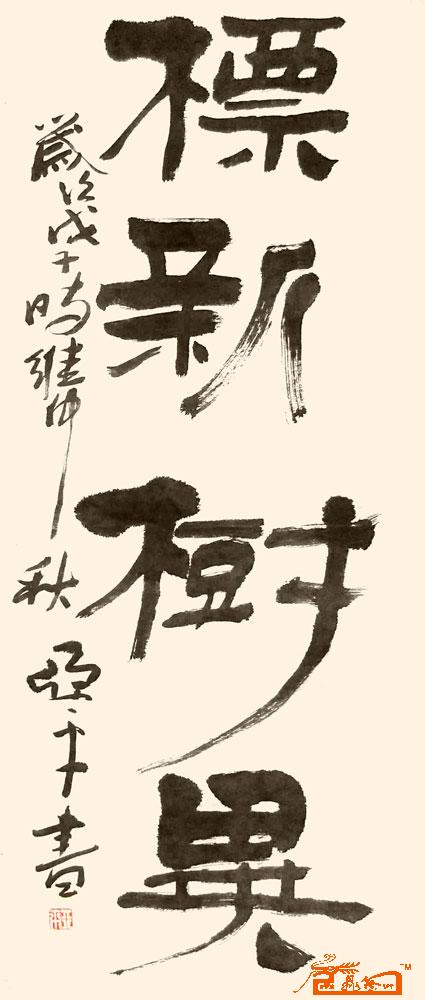 標新樹異
歲次戊子時維仲秋亞平書